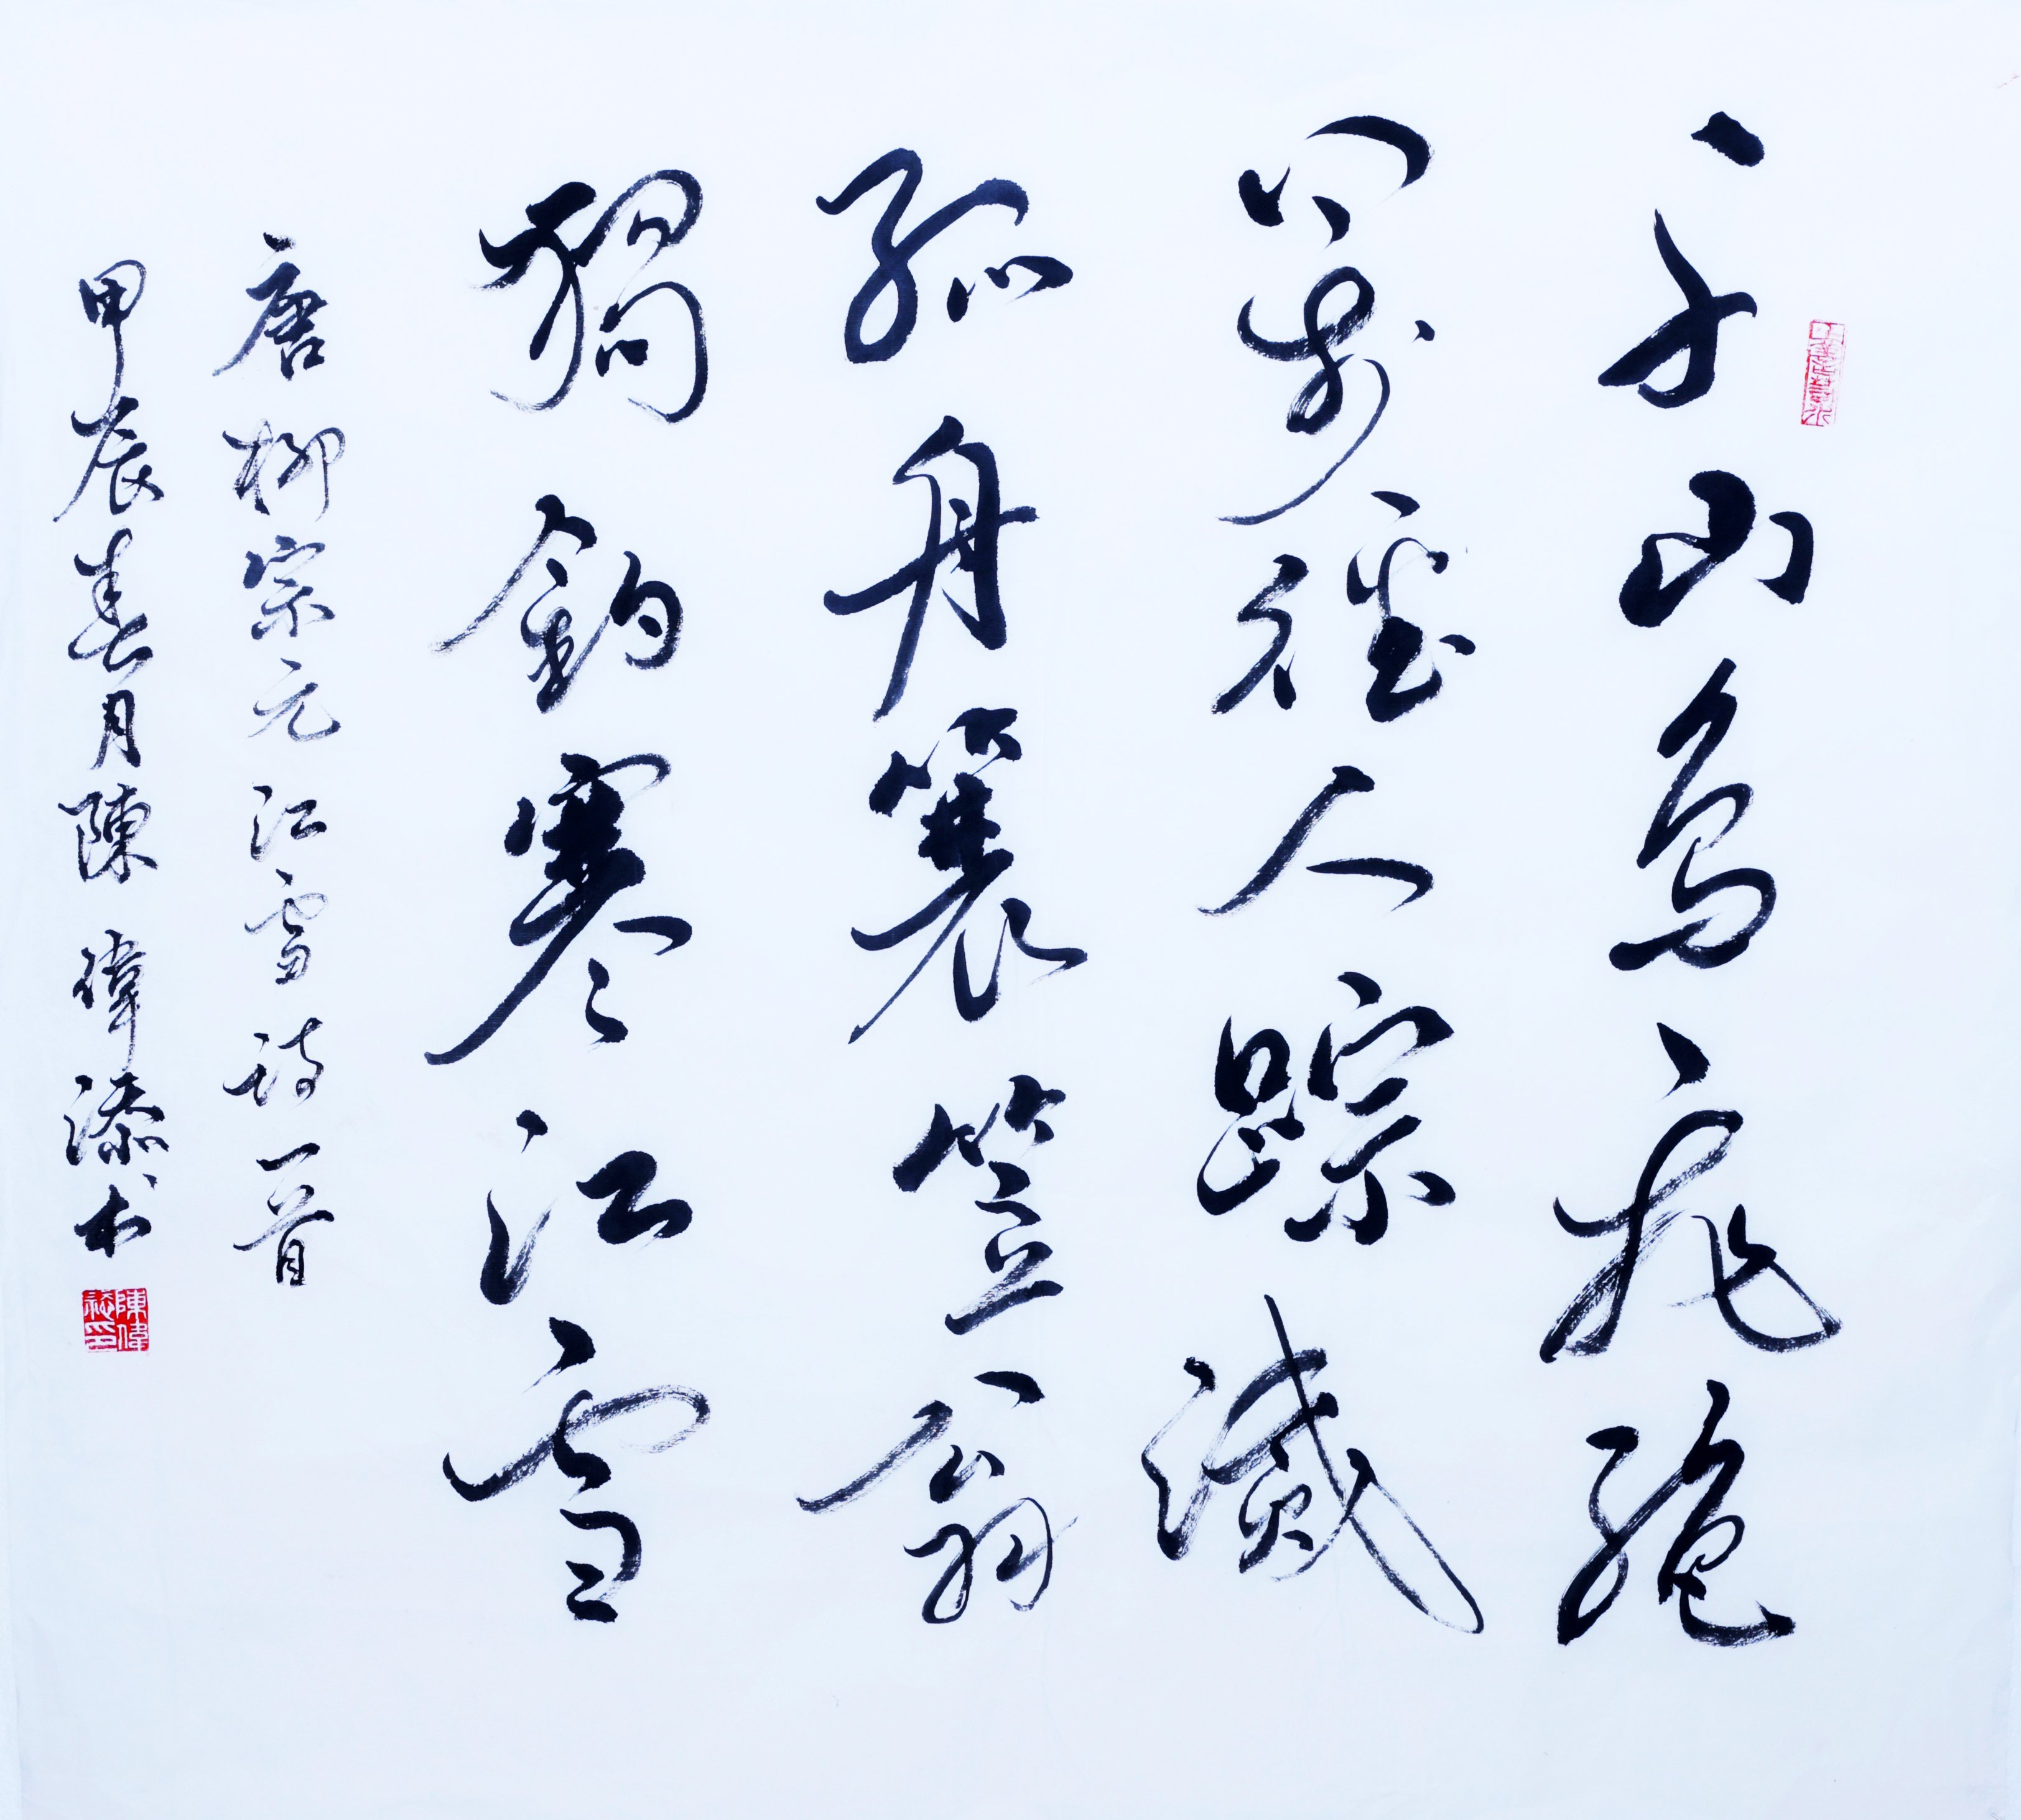 千山鳥飛絕
萬徑人踪滅
孤舟簑笠翁
獨釣寒江雪
唐柳宗元江雪詩一首
甲辰春月陳偉添书
陳偉添印